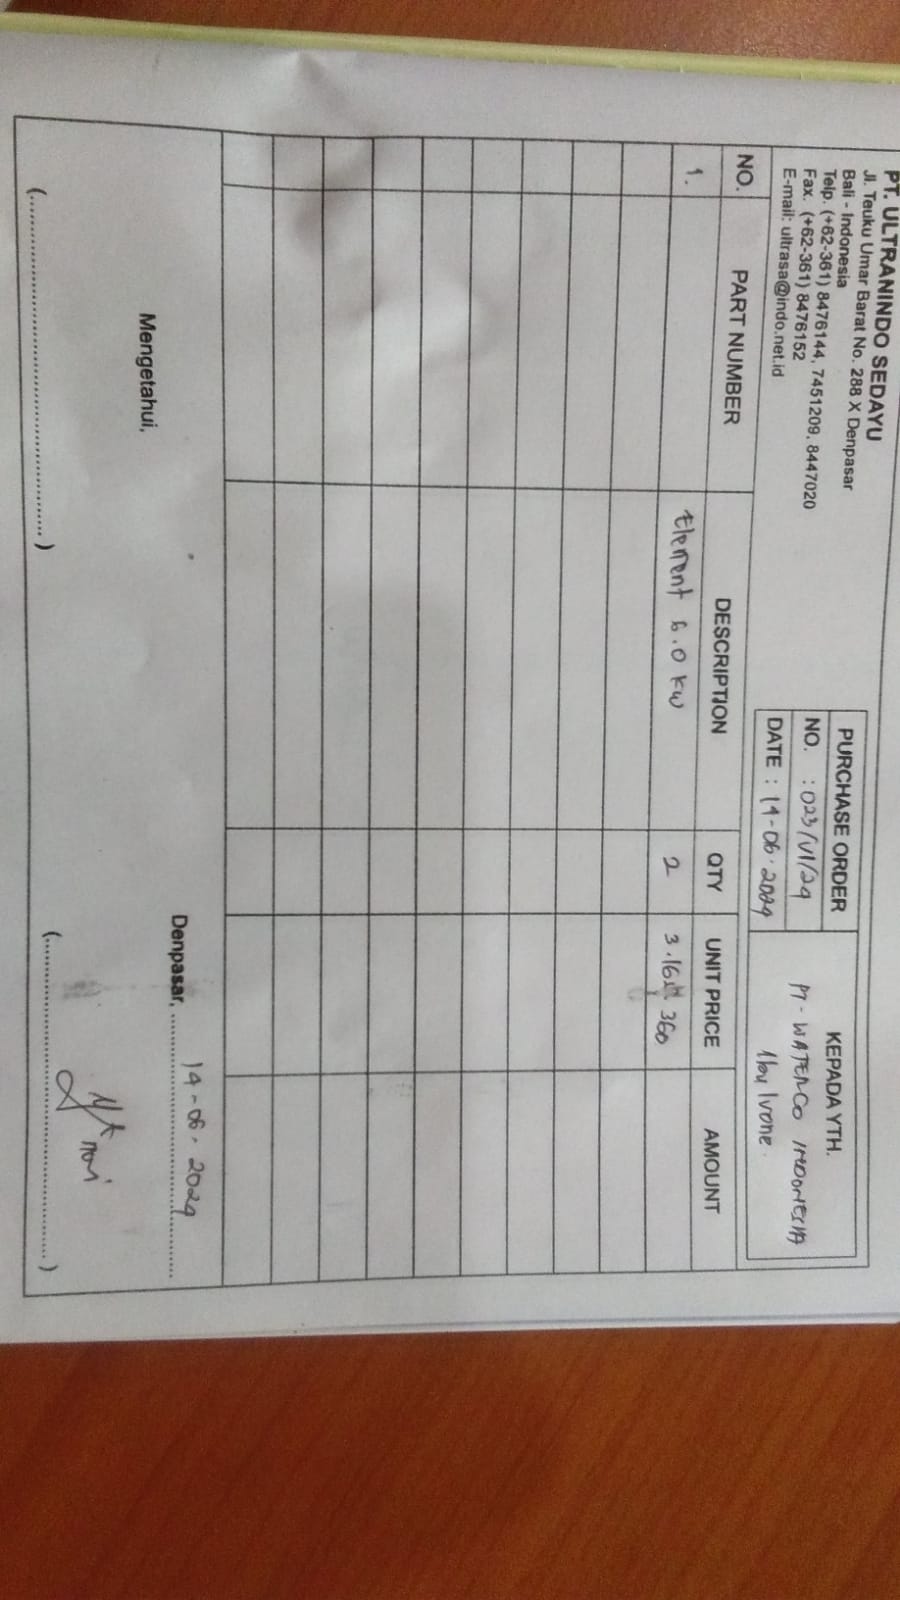 PT. ULTRANINDO SEDAYU
Jl. Teuku Umar Barat No. 288 X Denpasar
Bali - Indonesia
Telp. (+62-361) 8476144, 7451209, 8447020
Fax. (+62-361) 8476152
E-mail: ultrasa@indo.net.id
PURCHASE ORDER
NO. : 023/VI/24
DATE : 14-06-2024
KEPADA YTH.
PT. WATERCO INDONESIA
Ibu Ivone.
NO. PART NUMBER DESCRIPTION QTY UNIT PRICE AMOUNT
1. Element 6.0 kw 2
Mengetahui,
Denpasar, 14-06-2024
(..........) (..........)